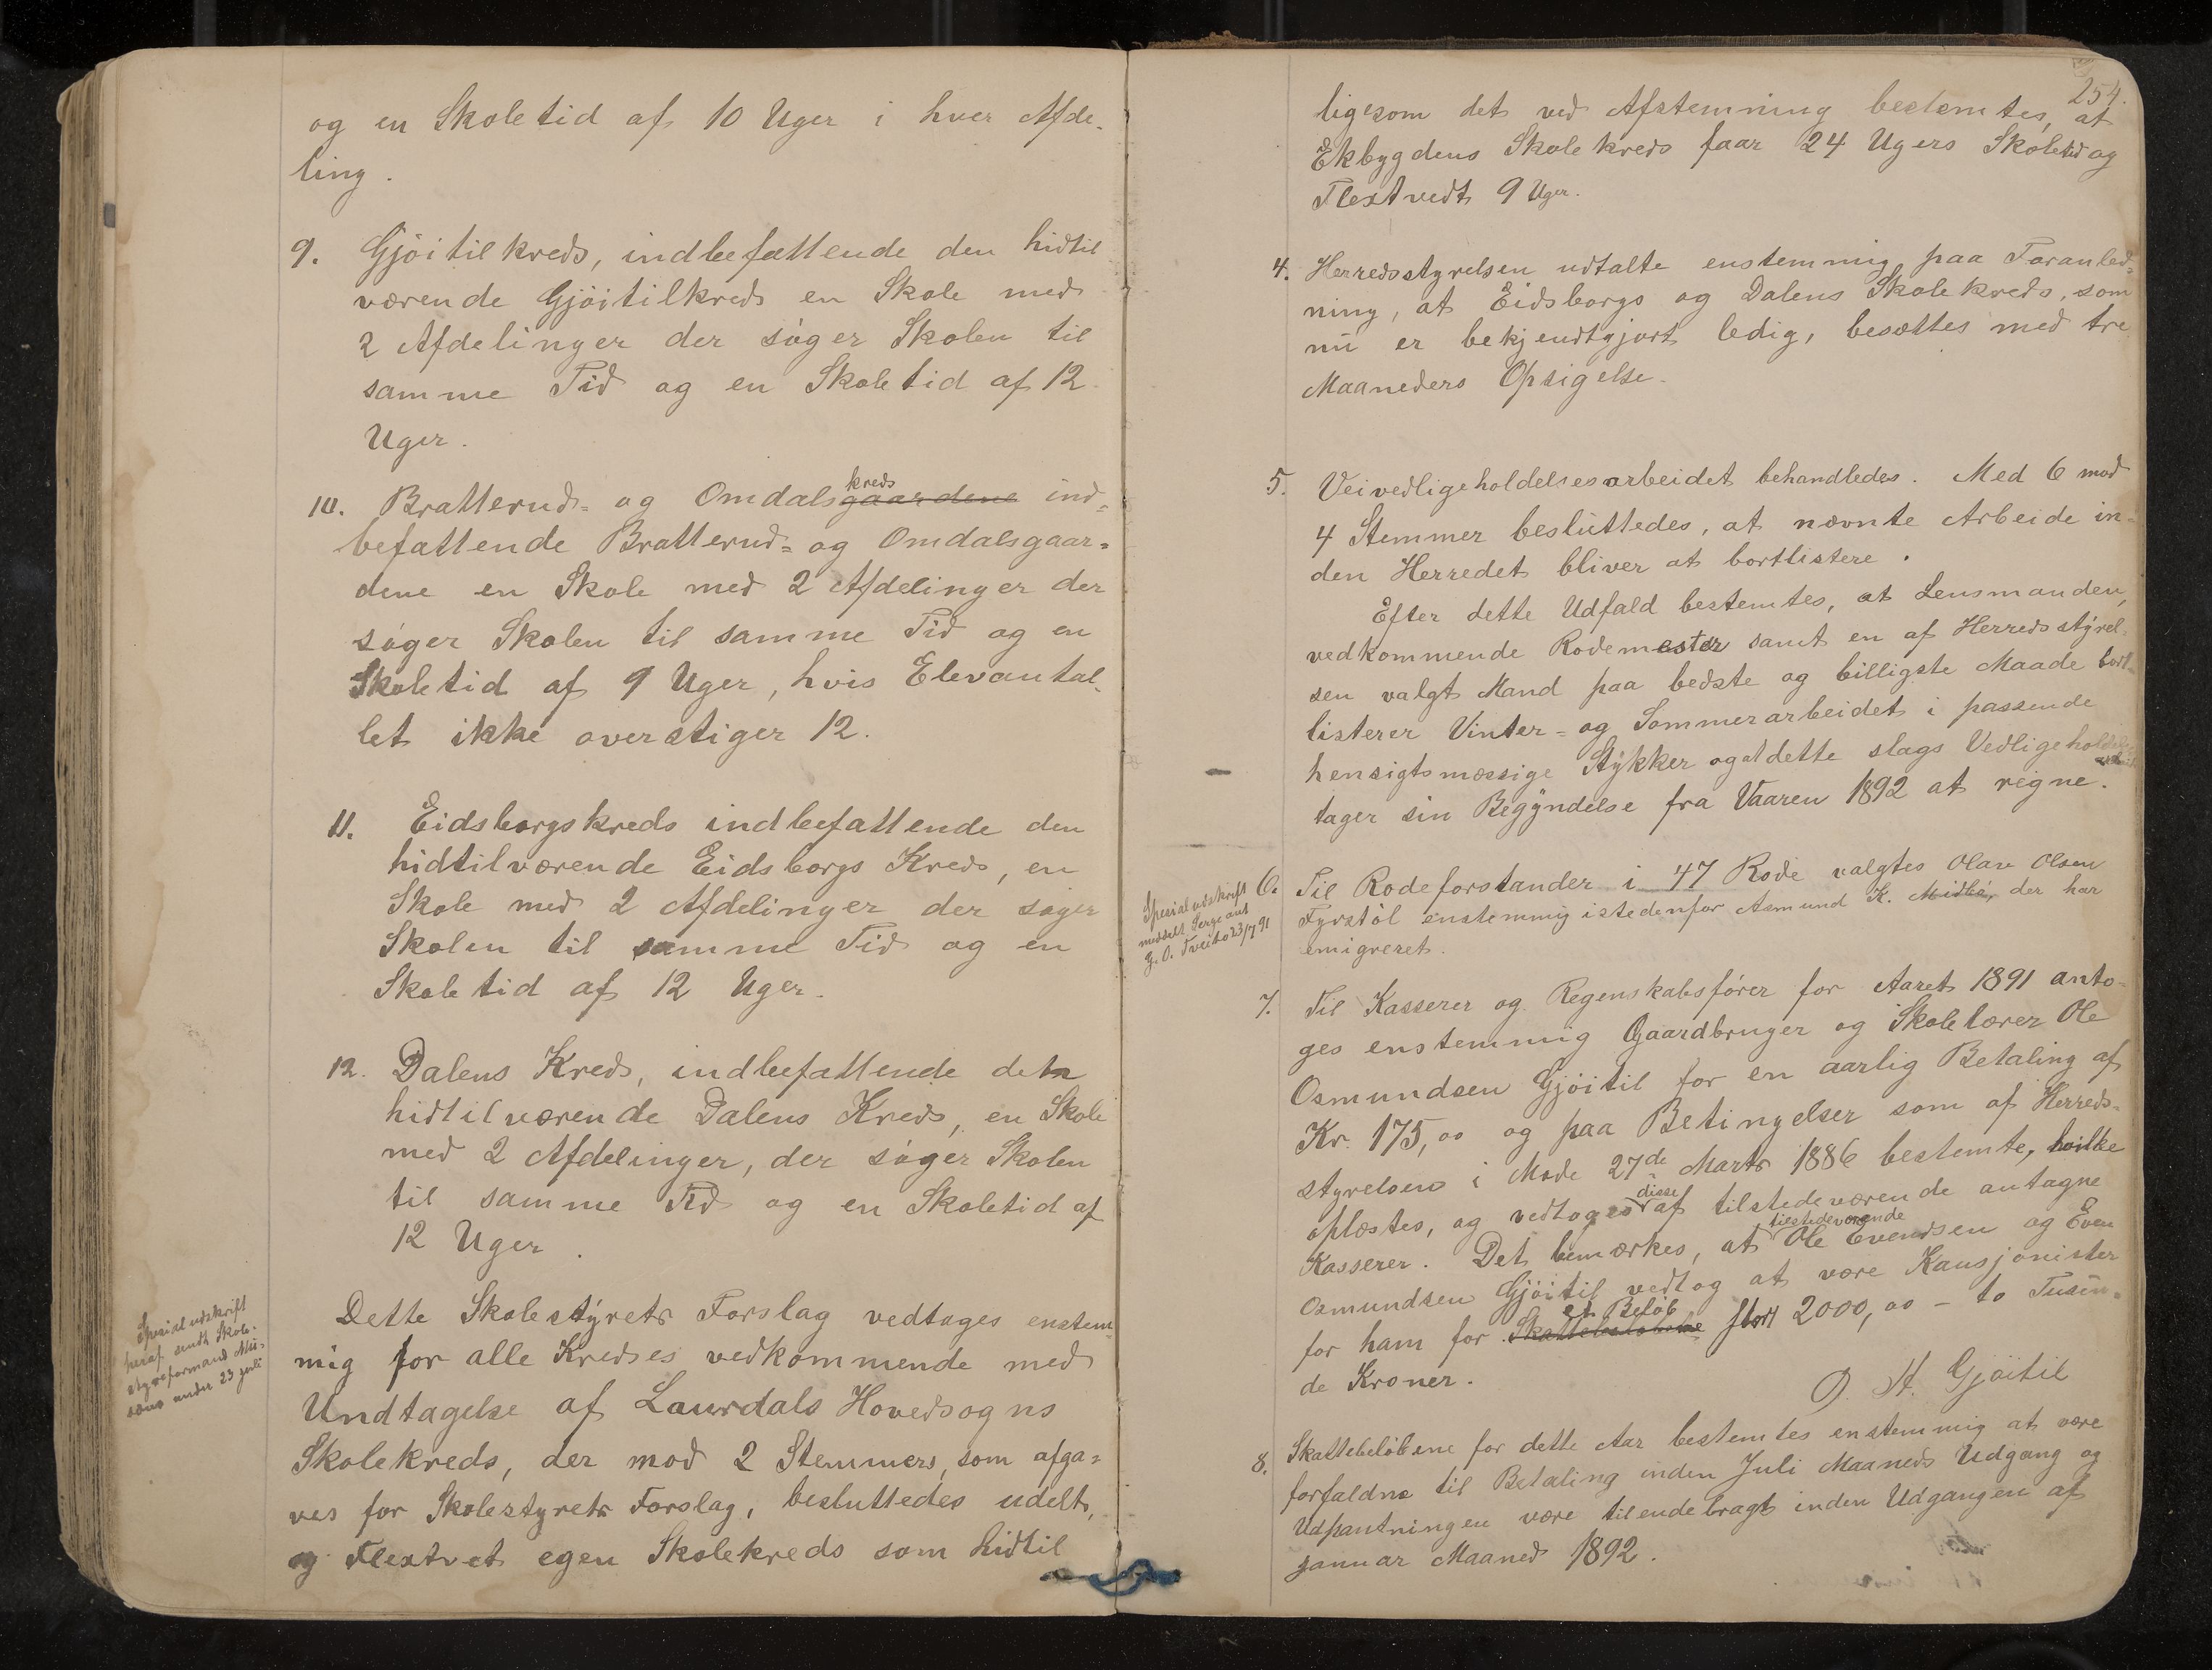 og en Skoletid af 10 Uger i hver Afde-
ling.
9. Gjöitilkreds, indbefattende den hidtil
værende Gjöitilkreds en Skole med
2 Afdelinger der söger Skolen til
samme Tid og en Skoletid af 12
Uger.
kreds
10. Bratterud- og Omdalsgaardene ind-
befattende Bratterud- og Omdalsgaar-
dene en Skole med 2 Afdelinger der
söger Skolen til samme Tid og en
Skoletid af 9 Uger, hvis Elevantal-
let ikke overstiger 12.
11. Eidsborgskreds indbefattende den
hidtilværende Eidsborgs Kreds, en
Skole med 2 Afdelinger der söger
Skolen til samme Tid og en
Skoletid af 12 Uger.
12. Dalens Kreds, indbefattende den
hidtilværende Dalens Kreds, en Skole
med 2 Afdelinger, der söger Skolen
til samme Tid og en Skoletid af
12 Uger.
Spesialudskrift
heraf sendt Skole-
styreformand
under 23 juli
Dette Skolestyrets Forslag vedtages enstem-
mig for alle Kredses vedkommende med
Undtagelse af Laurdals Hovedsogns
Skolekreds, der mod 2 Stemmers, som afga-
ves for Skolestyrets Forslag, besluttedes udelt,
og Flextvet egen Skolekreds som hidtil
254.
ligesom det ved Afstemning bestemtes, at
Ekbygdens Skolekreds faar 24 Ugers Skoletid og
Flextvedt 9 Uger.
4. Herredsstyrelsen udtalte enstemmig paa Foranled-
ning, at Eidsborgs og Dalens Skolekreds, som
nu er bekjendtgjort ledig, besættes med tre
Maaneders Opsigelse.
5. Veivedligeholdelsesarbeidet behandledes. Med 6 mod
4 Stemmer besluttedes, at nævnte Arbeide in-
den Herredet bliver at bortlistere.
Efter dette Udfald bestemtes, at Lensmanden,
vedkommende Rodemester samt en af Herredsstyrel-
sen valgt Mand paa bedste og billigste Maade bort-
listerer Vinter- og Sommerarbeidet i passende
hensigtsmæssige Stykker og at dette slags Vedligeholdelse
tager sin Begyndelse fra Vaaren 1892 at regne.
Spesialudskrift
meddelt Sergeant
G. O. Tveito 23/7 91
6. Til Rodeforstander i 47 Rode valgtes Olav Olsen
Fyrstöl enstemmig istedenfor Asmund K. Midbö, der har
emigreret.
7. Til Kasserer og Regenskabsförer for Aaret 1891 anto-
ges enstemmig Gaardbruger og Skolelærer Ole
Osmundsen Gjöitil for en aarlig Betaling af
Kr. 175,00 og paa Betingelser som af Herreds-
styrelsen i Møde 27de Marts 1886 bestemte, hvilke
oplæstes, og vedtoges disse af tilstedeværende antagne
tilstedeværende
Kasserer. Det bemærkes, at Ole Evensen og Even
Osmundsen Gjöitil vedtog at være Kausjonister
et Belöb
for ham for Skattebelöbene stort 2000,00 - to Tusin-
de Kroner.
O. A. Gjöitil
8. Skattebelöbene for dette Aar bestemtes enstemmig at være
forfaldne til Betaling inden Juli Maaneds Udgang og
Udpantningen være tilendebragt inden Udgangen af
januar Maaned 1892.